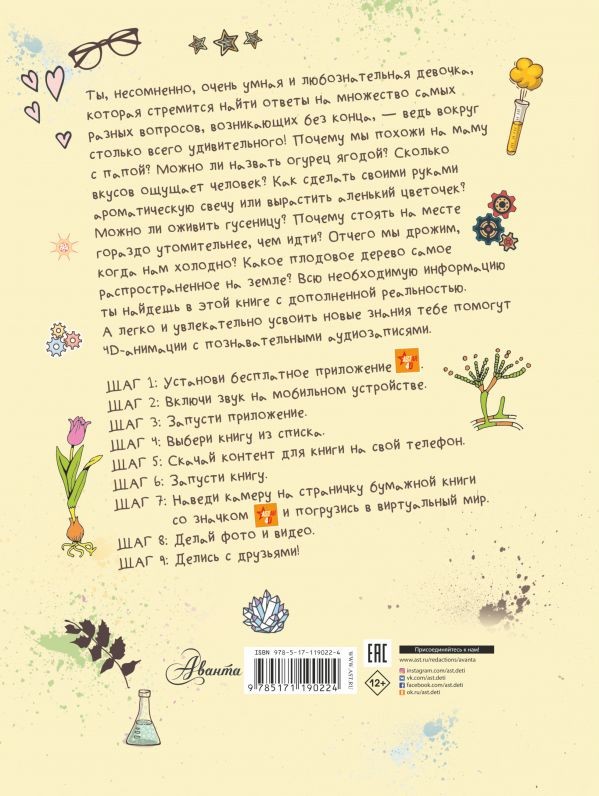 Ты, несомненно, очень умная и любознательная девочка,
которая стремится найти ответы на множество самых
разных вопросов, возникающих без конца, — ведь вокруг
столько всего удивительного! Почему мы похожи на маму
с папой? Можно ли назвать огурец ягодой? Сколько
вкусов ощущает человек? Как сделать своими руками
ароматическую свечу или вырастить аленький цветочек?
Можно ли оживить гусеницу? Почему стоять на месте
гораздо утомительнее, чем идти? Отчего мы дрожим,
когда нам холодно? Какое плодовое дерево самое
распространенное на земле? Всю необходимую информацию
ты найдешь в этой книге с дополненной реальностью.
А легко и увлекательно усвоить новые знания тебе помогут
4D-анимации с познавательными аудиозаписями.
ШАГ 1: Установи бесплатное приложение .
ШАГ 2: Включи звук на мобильном устройстве.
ШАГ 3: Запусти приложение.
ШАГ 4: Выбери книгу из списка.
ШАГ 5: Скачай контент для книги на свой телефон.
ШАГ 6: Запусти книгу.
ШАГ 7: Наведи камеру на страничку бумажной книги
со значком и погрузись в виртуальный мир.
ШАГ 8: Делай фото и видео.
ШАГ 9: Делись с друзьями!
Аванта
ISBN 978-5-17-119022-4
9 785171 190224
WWW.AST.RU
EAC
12+
Присоединяйтесь к нам!
www.ast.ru/redactions/avanta
instagram.com/ast.deti
vk.com/ast.deti
facebook.com/ast.deti
ok.ru/ast.deti